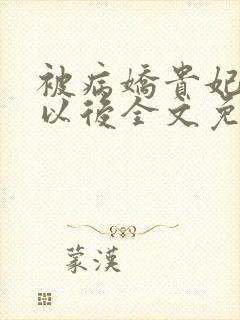 被病嬌貴妃
以後全文免
蒙漢